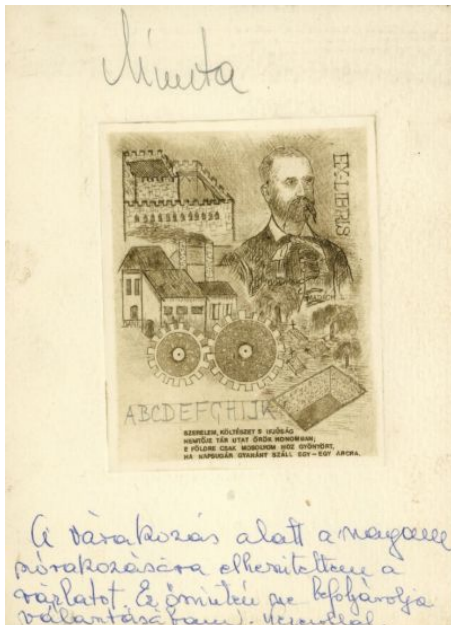 Minta
EX-LIBRIS
ABCDEFGHIJK
SZERELEM, KÖLTÉSZET S IFJÚSÁG
NEMTŐJE TÁR UTAT ÖRÖK HONOMBAN;
E FÖLDRE CSAK MOSOLYOM HOZ GYÖNYÖRT,
HA NAPSUGÁR GYANÁNT SZÁLL EGY-EGY ARCRA.
A várakozás alatt a magam
szórakozására elkészítettem a
vázlatot. Ez önöket ne befolyásolja